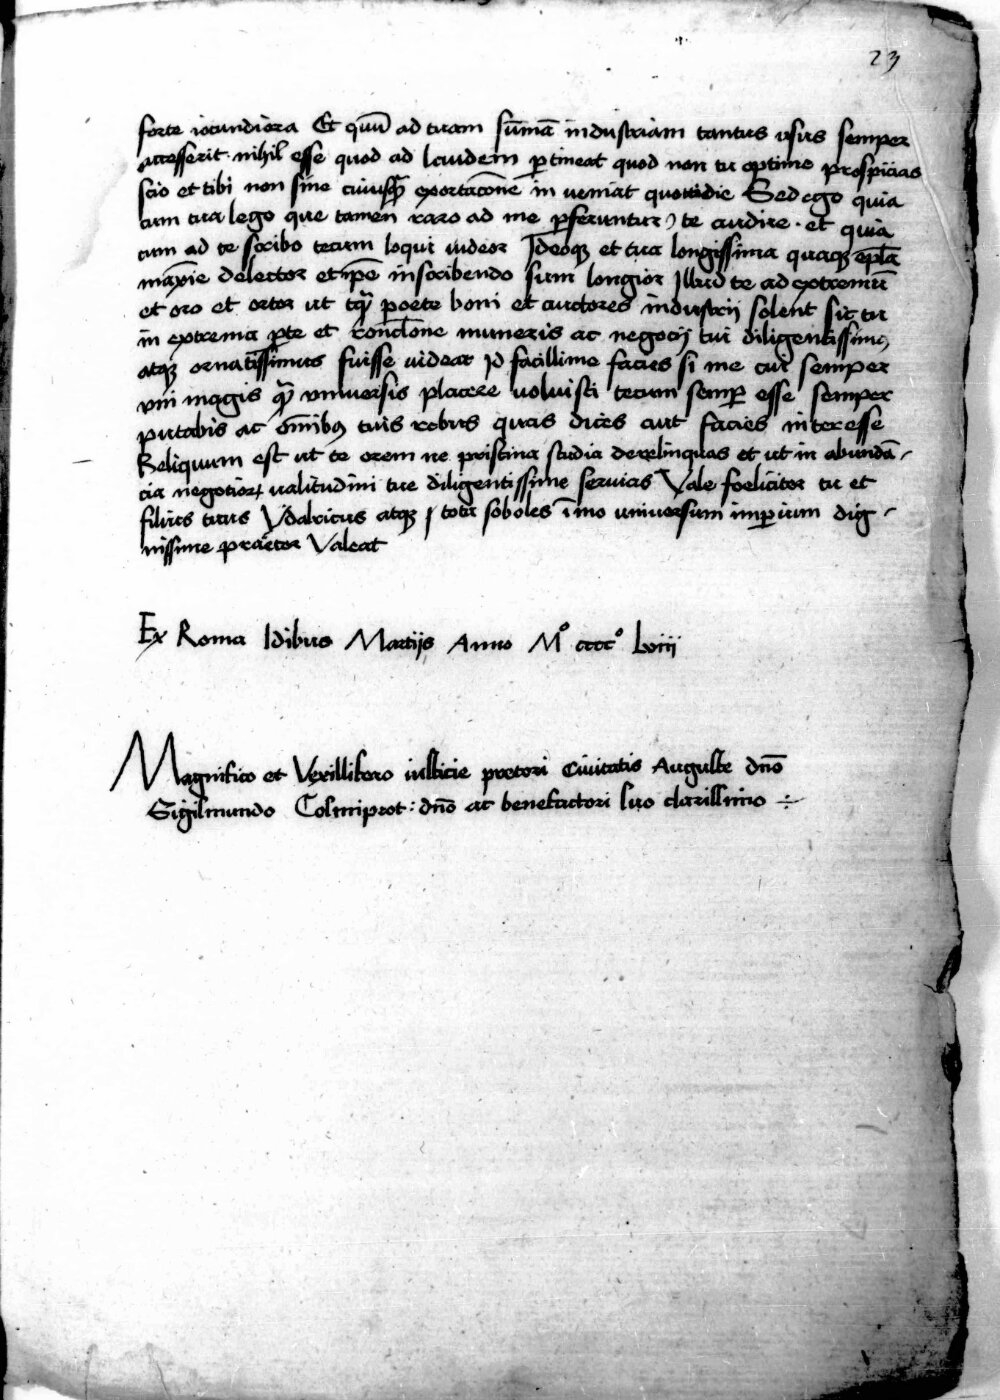 23
forte iocundiora Et quū ad tuam sūmā industriam tantus usus semper
accesserit nihil esse quod ad laudem ꝑtineat quod non tu optime prospicias
scio et tibi non sine cuiusꝙ̄ exortacōne in ueniāt quottidie Sed ego quia
cum tua lego que tamen raro ad me ꝑferuntur te audire et quia
cum ad te scribo tecum loqui uideor Ideoqꝫ et tua longissima quaqꝫ epl̄a
maxīe delector et ip̄e inscribendo sum longior Illud te ad extremū
et oro et ortor ut tꝙ̄ poete boni et auctores industrij solent sic tu
in extrema ꝑte et conclōne muneris ac negocij tui diligentissimꝰ
atqꝫ ornatissimus fuisse uidear Id facillime facies si me cui semper
vni magis ꝙ̄ vniuersis placere uoluisti tecum semꝑ esse semper
putabis ac ōmibꝰ tuis rebus quas dices aut facies interesse
Reliquum est ut te orem ne pristina studia derelinquas et ut in abundā-
cia negotioꝝ ualitudini tue diligentissime seruias Vale foelicitor tu et
filius tuus Vdalricus atqꝫ tota soboles īmo uniuersum imꝑium dig-
nissime praetor Valeat
Ex Roma Idibus Martijs Anno M° cccc° Lviij
Magnifico et Vexillifero iusticie pretori Ciuitatis Auguste dn̄o
Sigismundo Gossmprot: dn̄o ac benefactori suo clarissimo ÷